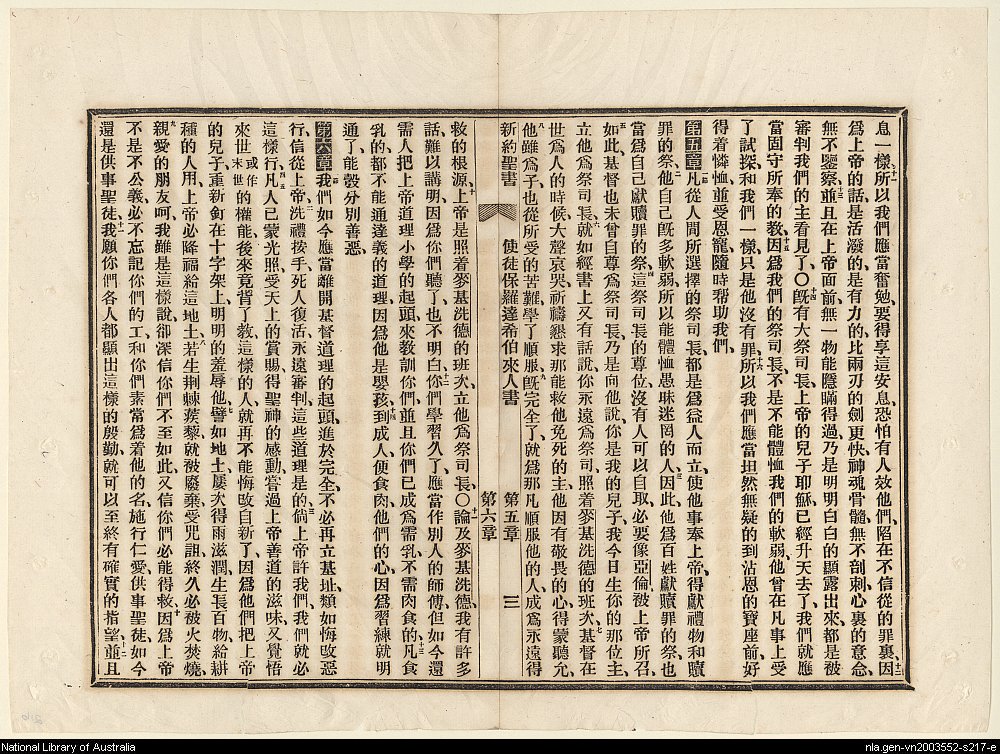 息一樣所以我們應當奮勉要得享這安息恐怕有人效他們陷在不信從的罪裏因
爲上帝的話是活潑的是有力的比兩刃的劍更快神魂骨髓無不剖刺心裏的意念
無不鑒察並且在上帝面前無一物能隱瞞得過乃是明明白白的顯露出來都是被
審判我們的主看見了〇旣有大祭司長上帝的兒子耶穌已經升天去了我們就應
當固守所奉的教因爲我們的祭司長不是不能體恤我們的軟弱他曾在凡事上受
了試探和我們一樣只是他沒有罪所以我們應當坦然無疑的到沾恩的寶座前好
得着憐恤並受恩寵隨時帮助我們
第五章凡從人間所選擇的祭司長都是爲益人而立使他事奉上帝得獻禮物和贖
罪的祭他自己旣多軟弱所以能體恤愚昧迷罔的人因此他爲百姓獻贖罪的祭也
當爲自己獻贖罪的祭這祭司長的尊位沒有人可以自取必要像亞倫被上帝所召
如此基督也未曾自尊爲祭司長乃是向他說你是我的兒子我今日生你的那位主
立他爲祭司長就如經書上又有話說你永遠爲祭司照着麥基洗德的班次基督在
世爲人的時候大聲哀哭祈禱懇求那能救他免死的主他因有敬畏的心得蒙聽允
他雖爲子也從所受的苦難學了順服旣完全了就爲那凡順服他的人成爲永遠得
新約聖書 使徒保羅達希伯來人書 第五章 第六章 三
救的根源上帝是照着麥基洗德的班次立他爲祭司長〇論及麥基洗德我有許多
話難以講明因爲你們聽了也不明白你們學習久了應當作別人的師傅但如今還
需人把上帝道理小學的起頭來教訓你們並且你們已成爲需乳不需肉食的凡食
乳的都不能通達義的道理因爲他是嬰孩到成人便食肉他們的心因爲習練就明
通了能彀分別善惡
第六章我們如今應當離開基督道理的起頭進於完全不必再立基址類如悔改惡
行信從上帝洗禮按手死人復活永遠審判這些道理是的倘上帝許我們我們就必
這樣行凡人已蒙光照受天上的賞賜得聖神的感動嘗過上帝善道的滋味又覺悟
來世或作末世的權能後來竟背了教這樣的人就再不能悔改自新了因爲他們把上帝
的兒子重新釘在十字架上明明的羞辱他譬如地土屢次得雨滋潤生長百物給耕
種的人用上帝必降福給這地土若生荆棘蒺藜就被廢棄受咒詛終久必被火焚燒
親愛的朋友呵我雖是這樣說卻深信你們不至如此又信你們必能得救因爲上帝
不是不公義必不忘記你們的工和你們素常爲着他的名施行仁愛供事聖徒如今
還是供事聖徒我願你們各人都顯出這樣的殷勤就可以至終有確實的指望並且
National Library of Australia
nla.gen-vn2003552-s217-e